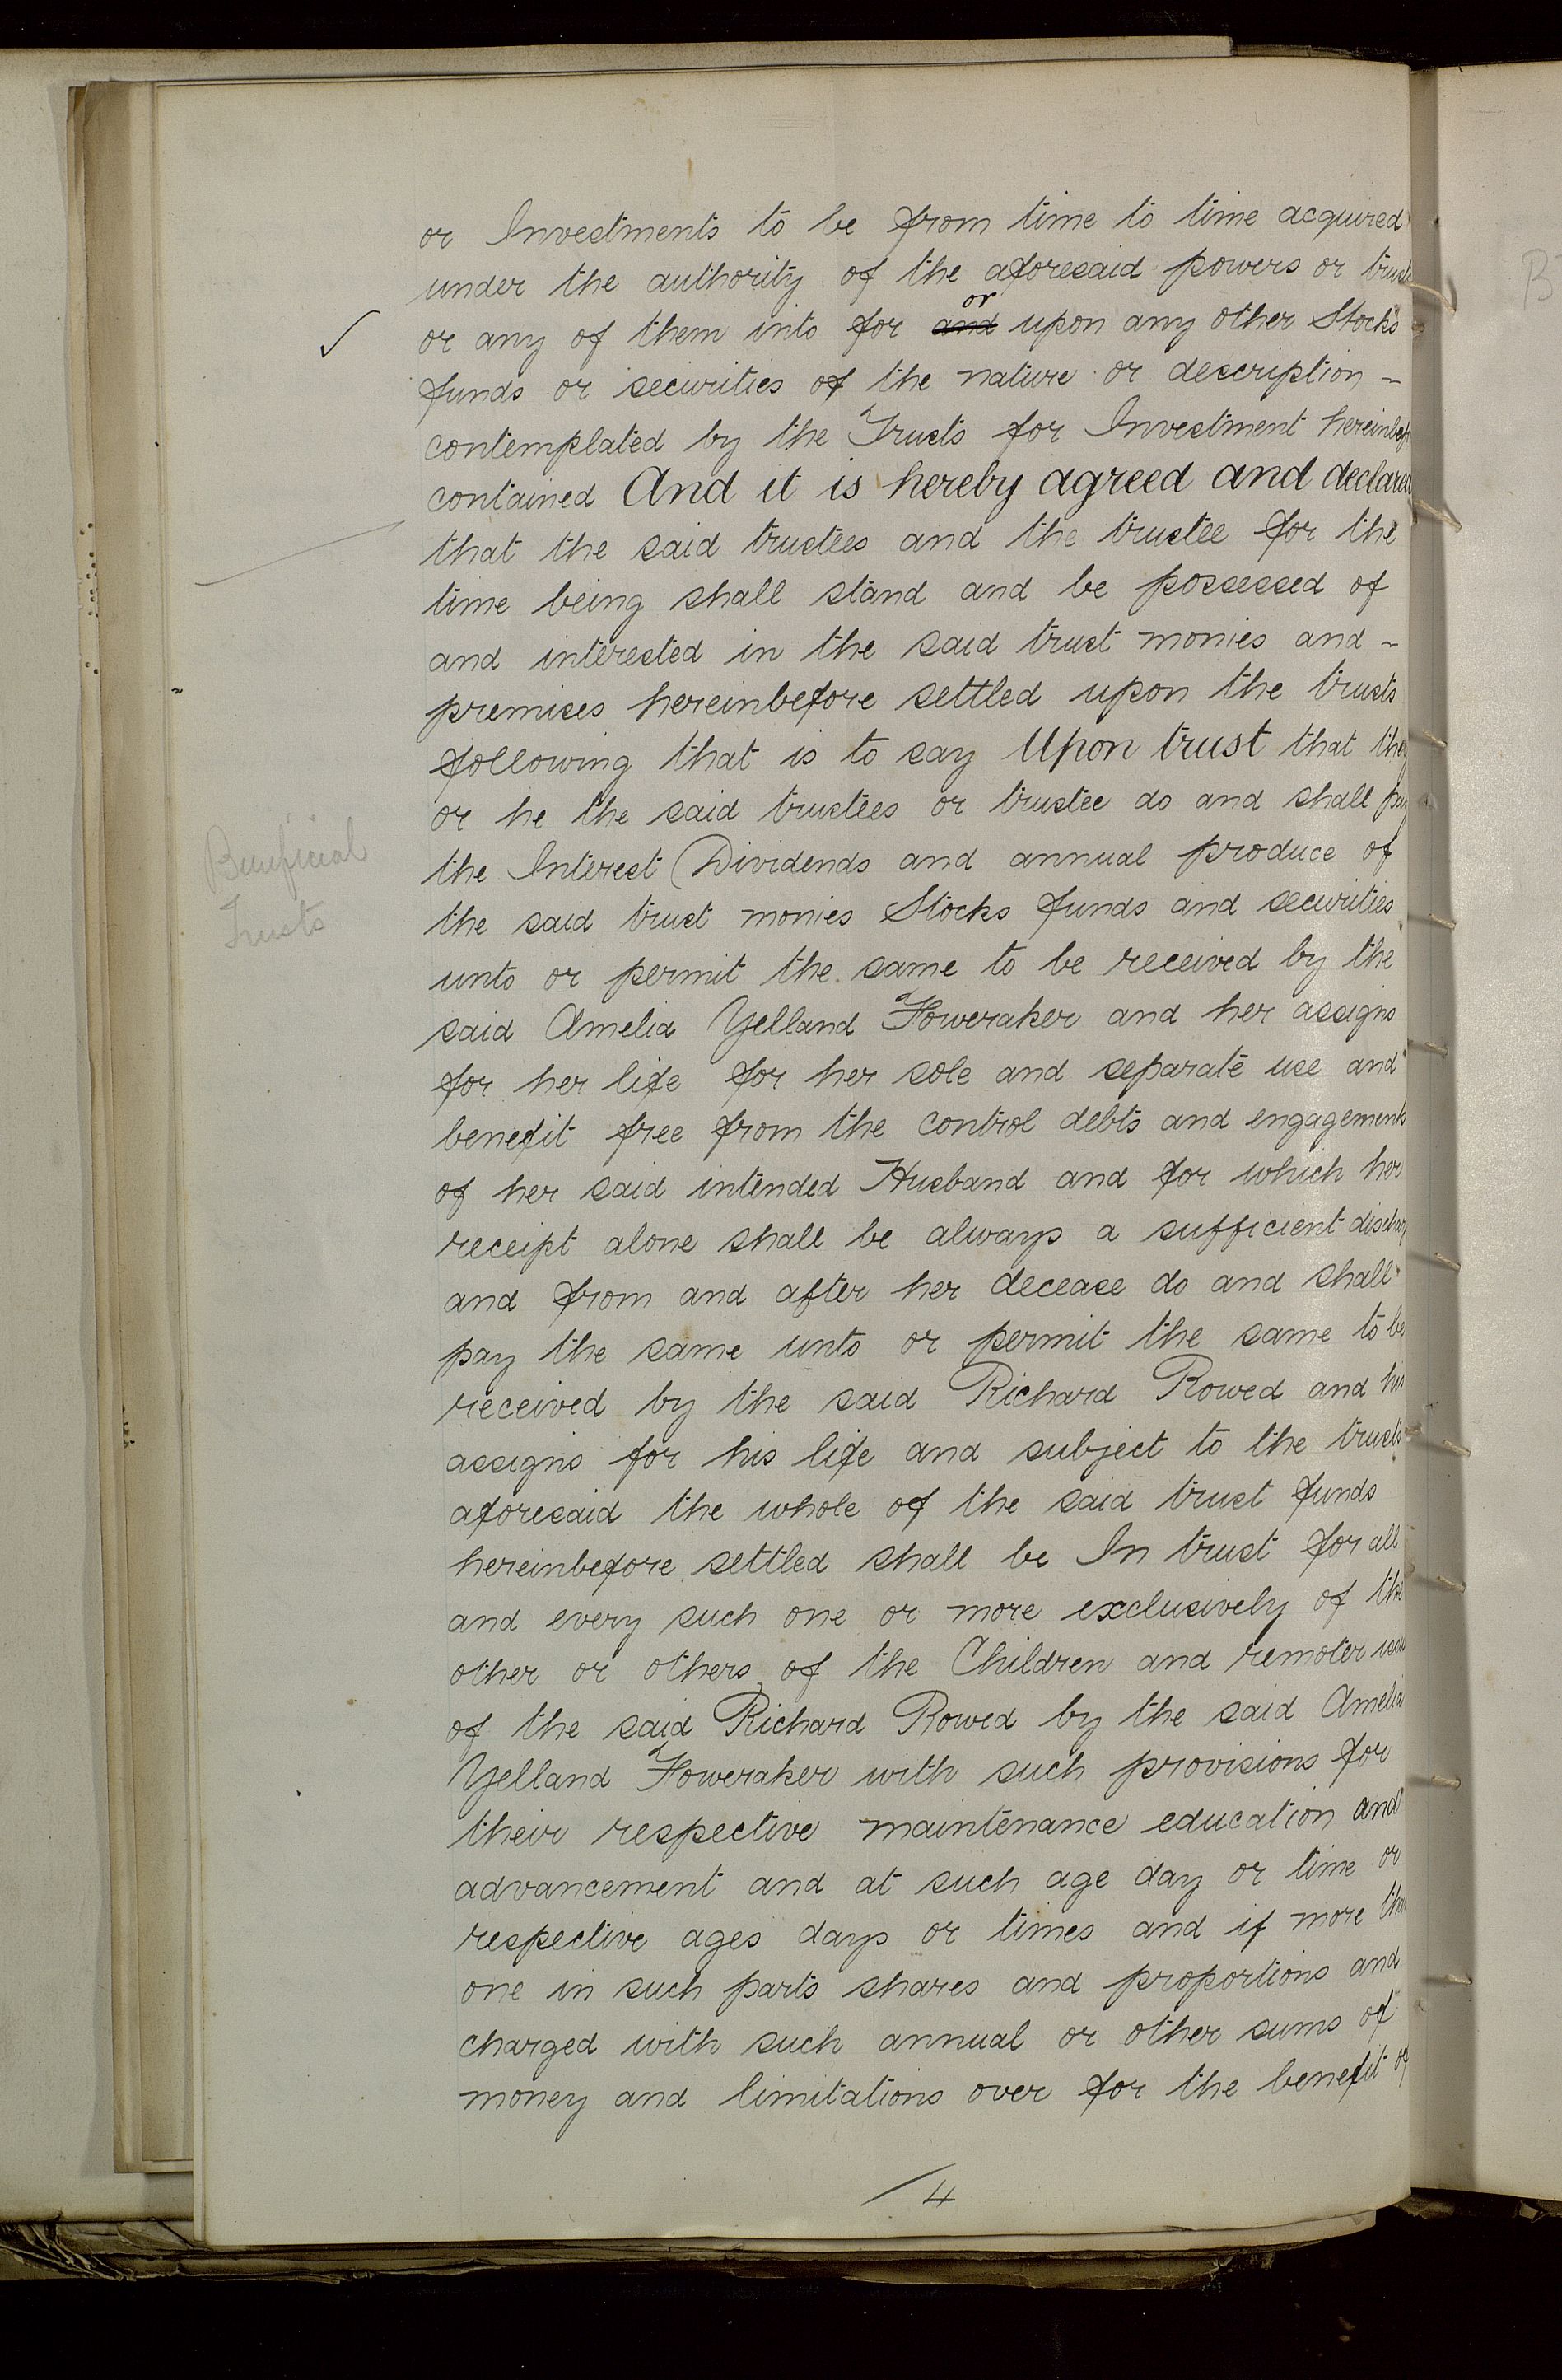 or Investments to be from time to time acquired
under the authority of the aforesaid powers or trusts
or
or any of them into for and upon any other Stocks
funds or securities of the nature or description -
contemplated by the Trusts for Investment hereinbef
contained And it is hereby agreed and declared
that the said trustees and the trustee for the
time being shall stand and be possessed of
and interested in the said trust monies and -
premises hereinbefore settled upon the trusts
following that is to say Upon trust that they
or he the said trustees or trustee do and shall pay
Beneficial
the Interest Dividends and annual produce of
Trusts
the said trust monies Stocks funds and securities
unto or permit the same to be received by the
said Amelia Yelland Foweraker and her assigns
for her life for her sole and separate use and
benefit free from the control debts and engagements
of her said intended Husband and for which her
receipt alone shall be always a sufficient dischar
and from and after her decease do and shall
pay the same unto or permit the same to be
received by the said Richard Rowed and his
assigns for his life and subject to the trusts
aforesaid the whole of the said trust funds
hereinbefore settled shall be In trust for all
and every such one or more exclusively of the
other or others of the Children and remoter issu
of the said Richard Rowed by the said Amelia
Yelland Foweraker with such provisions for
their respective maintenance education and
advancement and at such age day or time or
respective ages days or times and if more than
one in such parts shares and proportions and
charged with such annual or other sums of
money and limitations over for the benefit of
/4